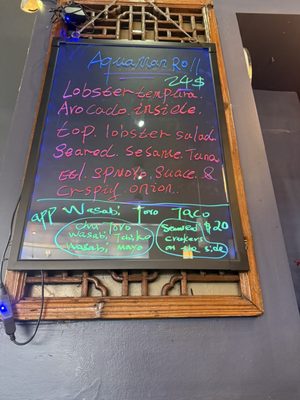 AquaMan Roll
24$
Lobster tempura.
Avocado. inside.
top. lobster salad
Seared. Sesame. Tuna
Eel. Spicy. Suace. &
Crispy. onion.
app Wasabi Toro Taco
chu. Toro
wasabi. Tobiko
wasabi. mayo
Seaweed $20
crakers
on the side